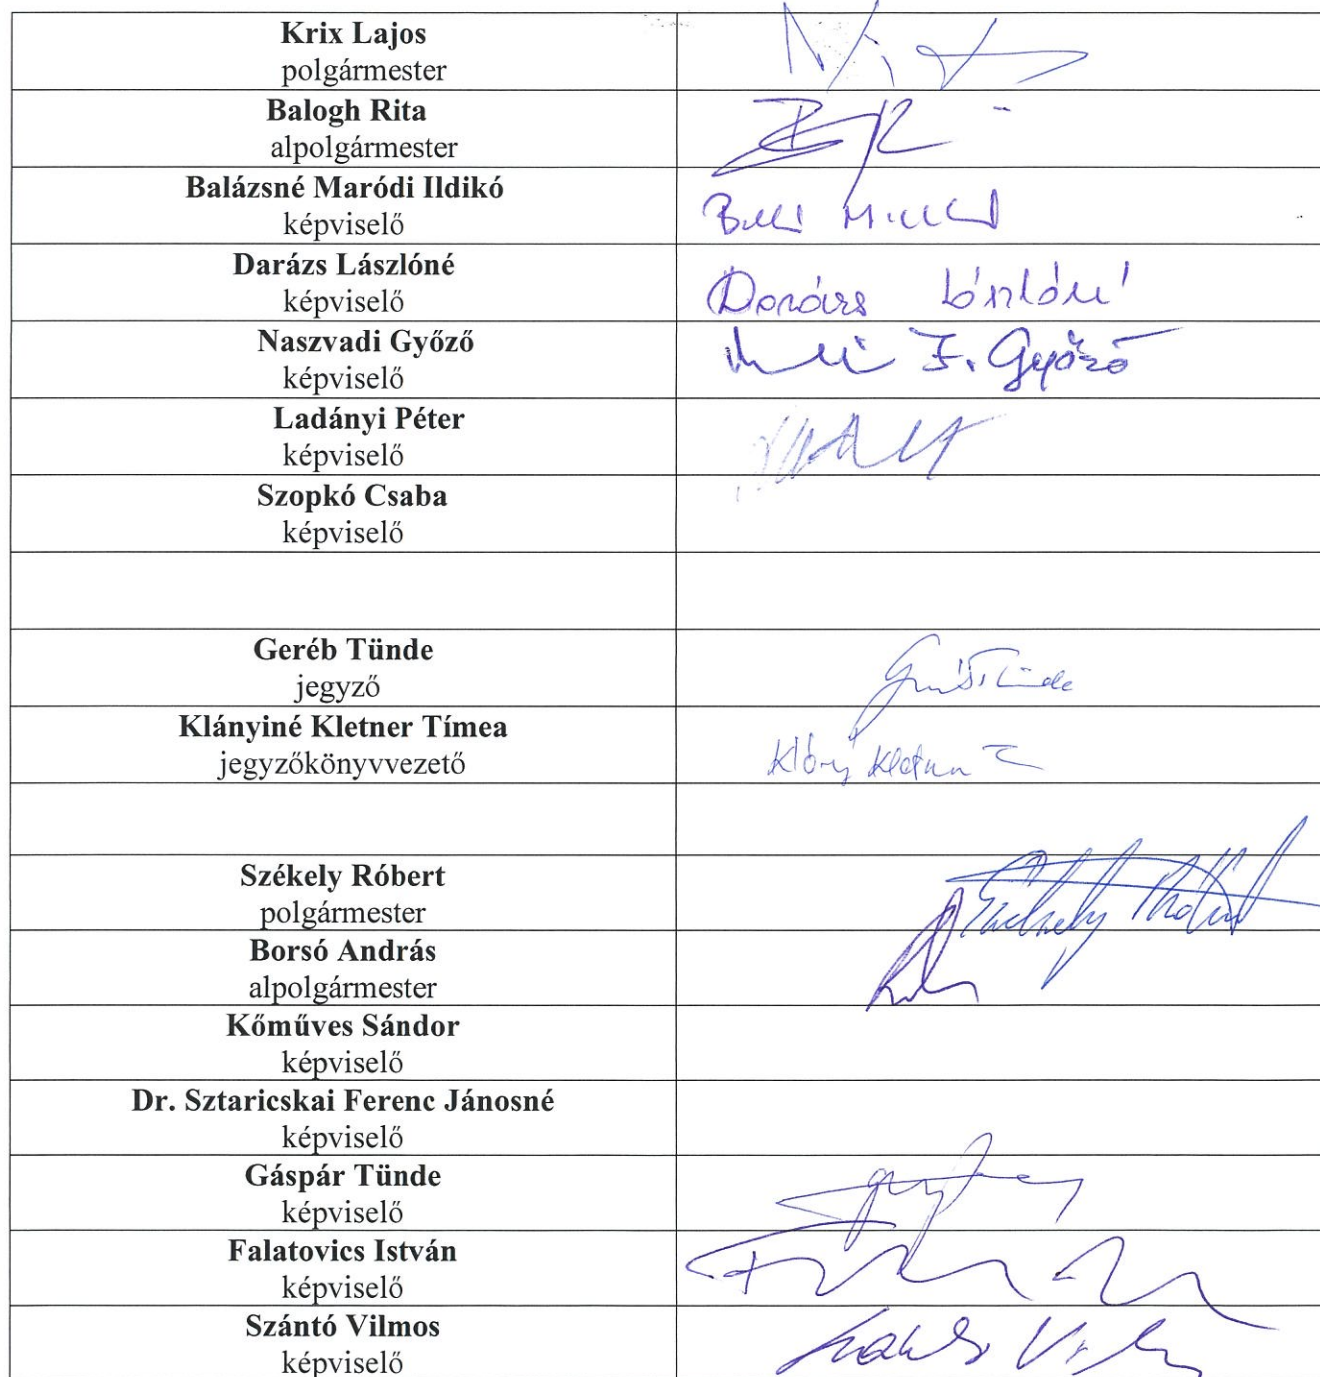 Krix Lajos
polgármester
Balogh Rita
alpolgármester
Balázsné Maródi Ildikó
képviselő
Darázs Lászlóné
képviselő
Darázs Lászlóné
Naszvadi Győző
képviselő
F. Győző
Ladányi Péter
képviselő
Szopkó Csaba
képviselő
Geréb Tünde
jegyző
Klányiné Kletner Tímea
jegyzőkönyvvezető
Székely Róbert
polgármester
Székely Róbert
Borsó András
alpolgármester
Kőműves Sándor
képviselő
Dr. Sztaricskai Ferenc Jánosné
képviselő
Gáspár Tünde
képviselő
Falatovics István
képviselő
Szántó Vilmos
képviselő